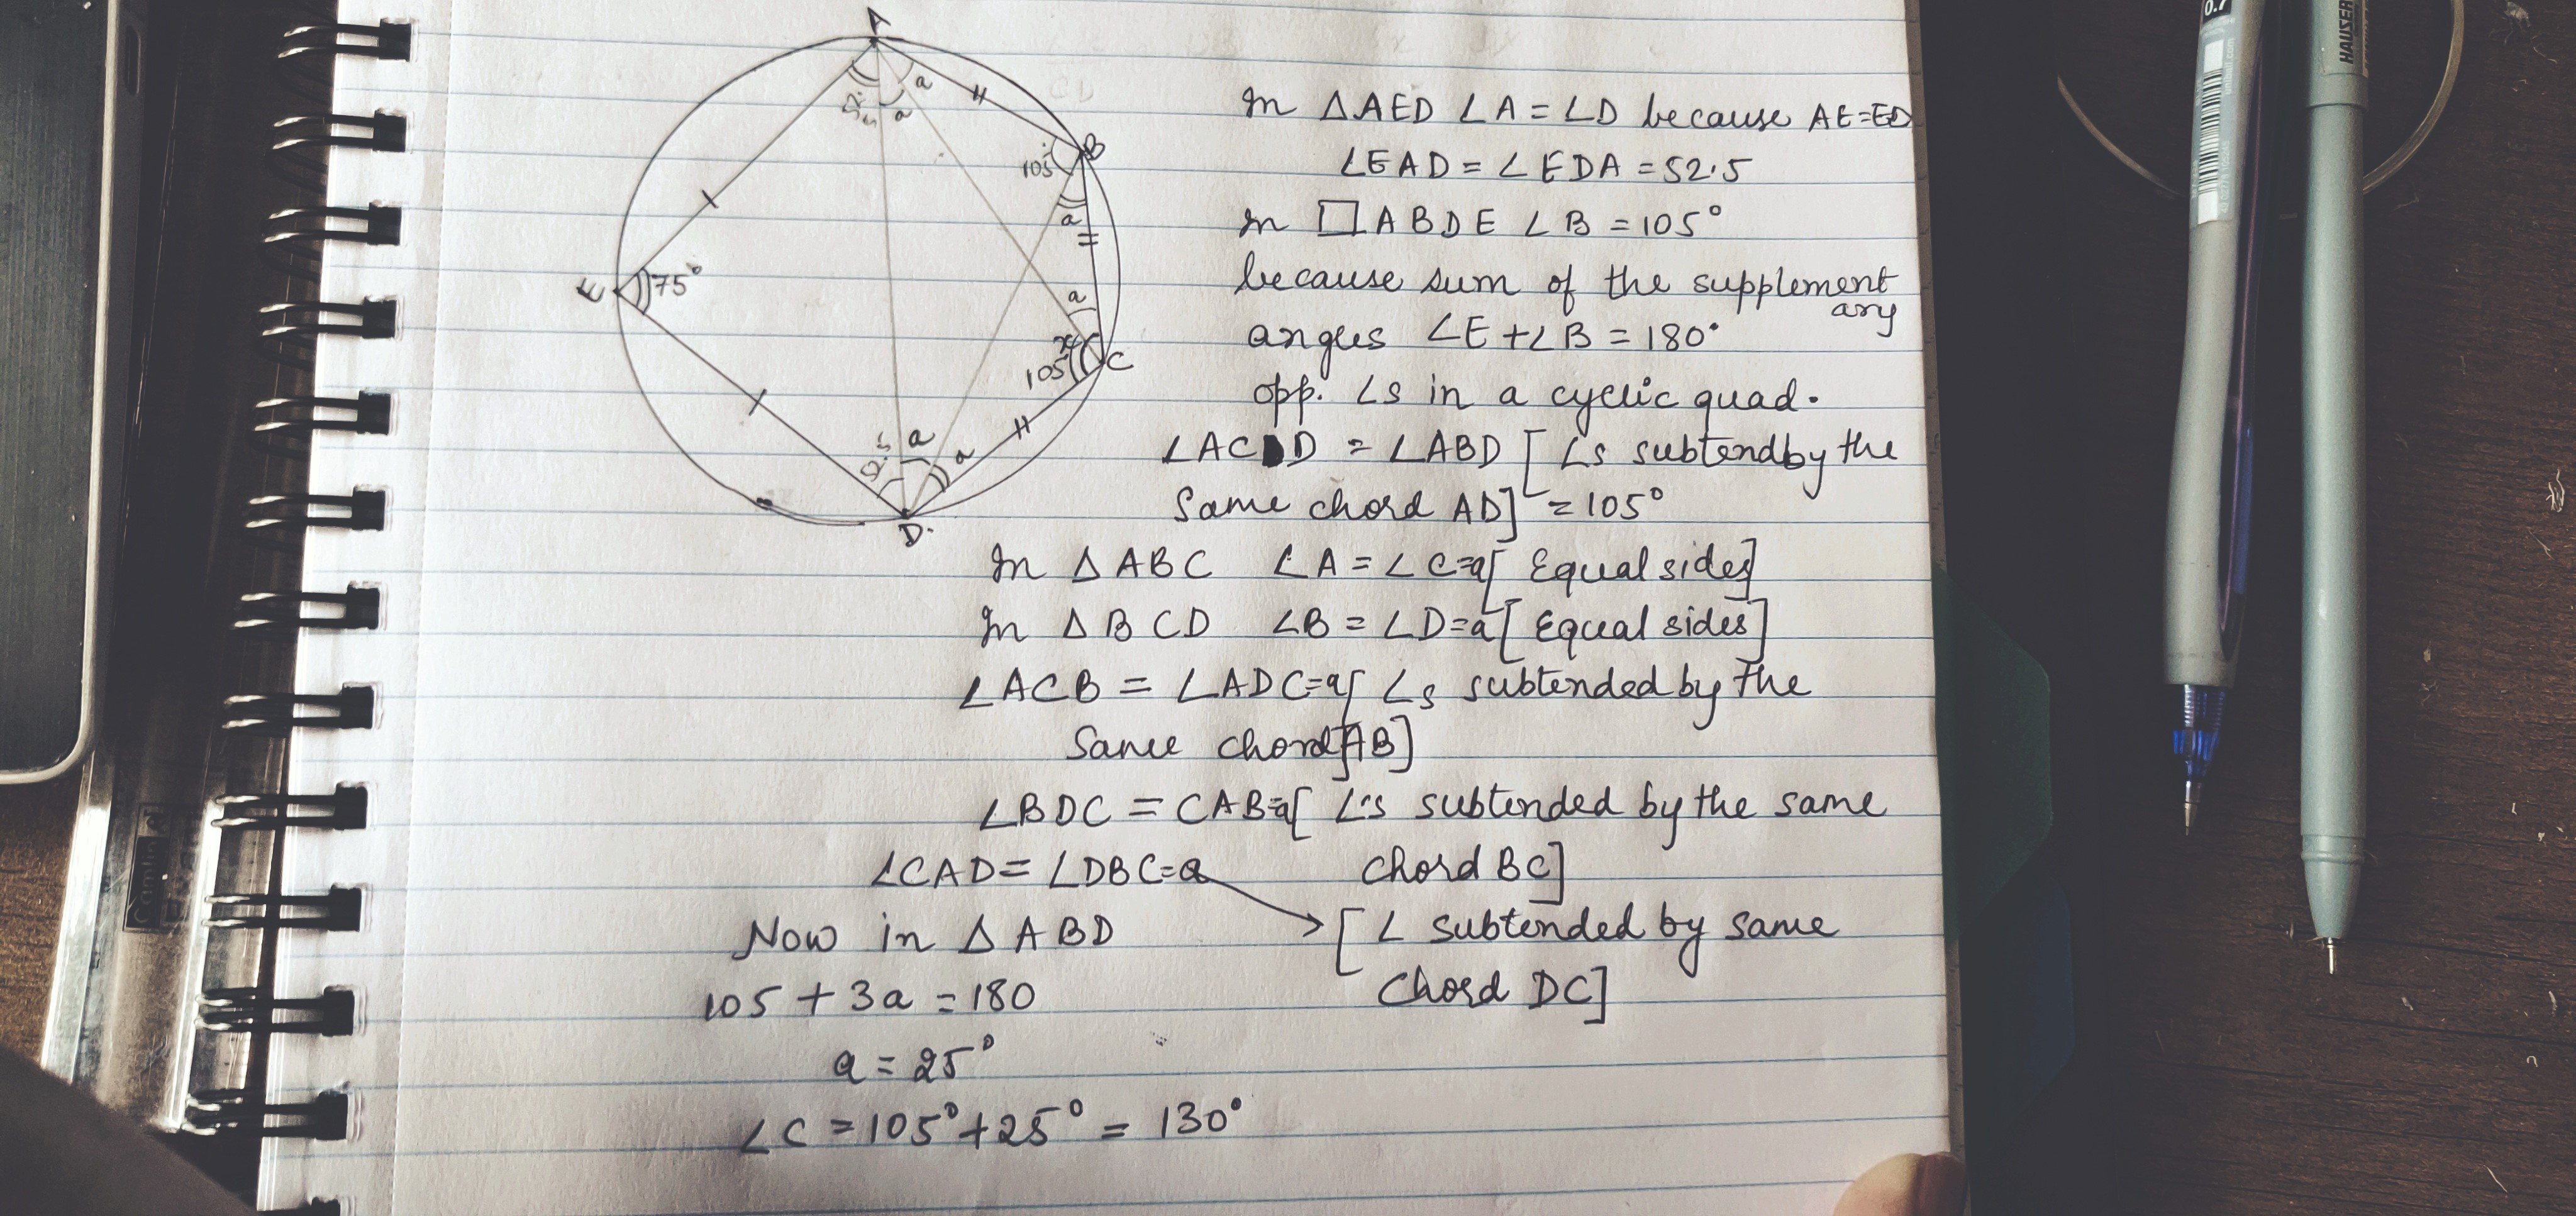 A
a
a
52.5
105°
B
a
E
75°
a
x
105
C
52.5
a
a
D.
In △AED ∠A = ∠D because AE=ED
∠EAD = ∠EDA = 52.5
In □ABDE ∠B = 105°
because sum of the supplement
ary
angles ∠E + ∠B = 180°
opp. ∠s in a cyclic quad.
∠ACD = ∠ABD [∠s subtend by the
Same chord AD] = 105°
In △ABC ∠A = ∠C=a[Equal sides]
In △BCD ∠B = ∠D=a[Equal sides]
∠ACB = ∠ADC=a[∠s subtended by the
Same chord AB]
∠BDC = CAB=a[∠'s subtended by the same
chord BC]
∠CAD = ∠DBC=a
Now in △ABD
[∠ subtended by same
Chord DC]
105 + 3a = 180
a = 25°
∠C = 105° + 25° = 130°
0.7
HAUSER
Camlin